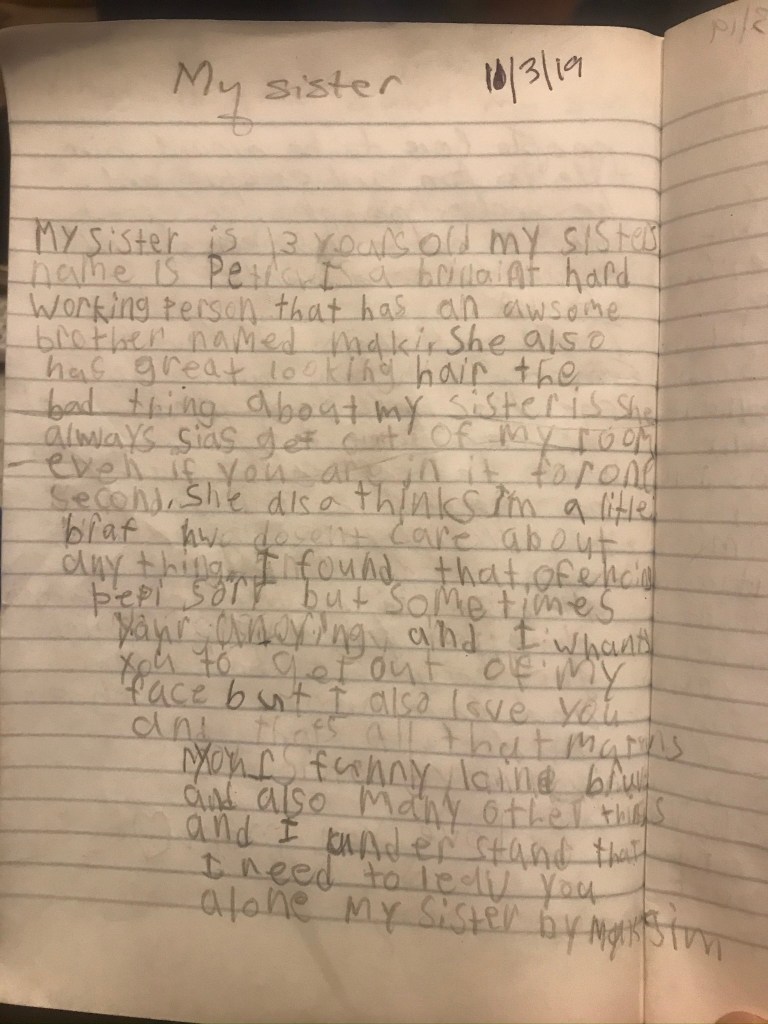 My sister 10/3/19
My sister is 13 yours old my sisters
name is Petra I a brillaint hard
working person that has an awsome
brother named maki. She also
has great looking hair the
bad thing about my sister is she
always sias get out of my room
even if you are in it for one
second. She also thinks im a litle
brat doesnt care about
any thing. I found that ofencive
pepi sorr but some times
your anoying and I whant
you to get out of my
face but I also love you
and thats all that maters
your funny kind
and also many other things
and I under stand that
I need to leav you
alone my sister by maksim